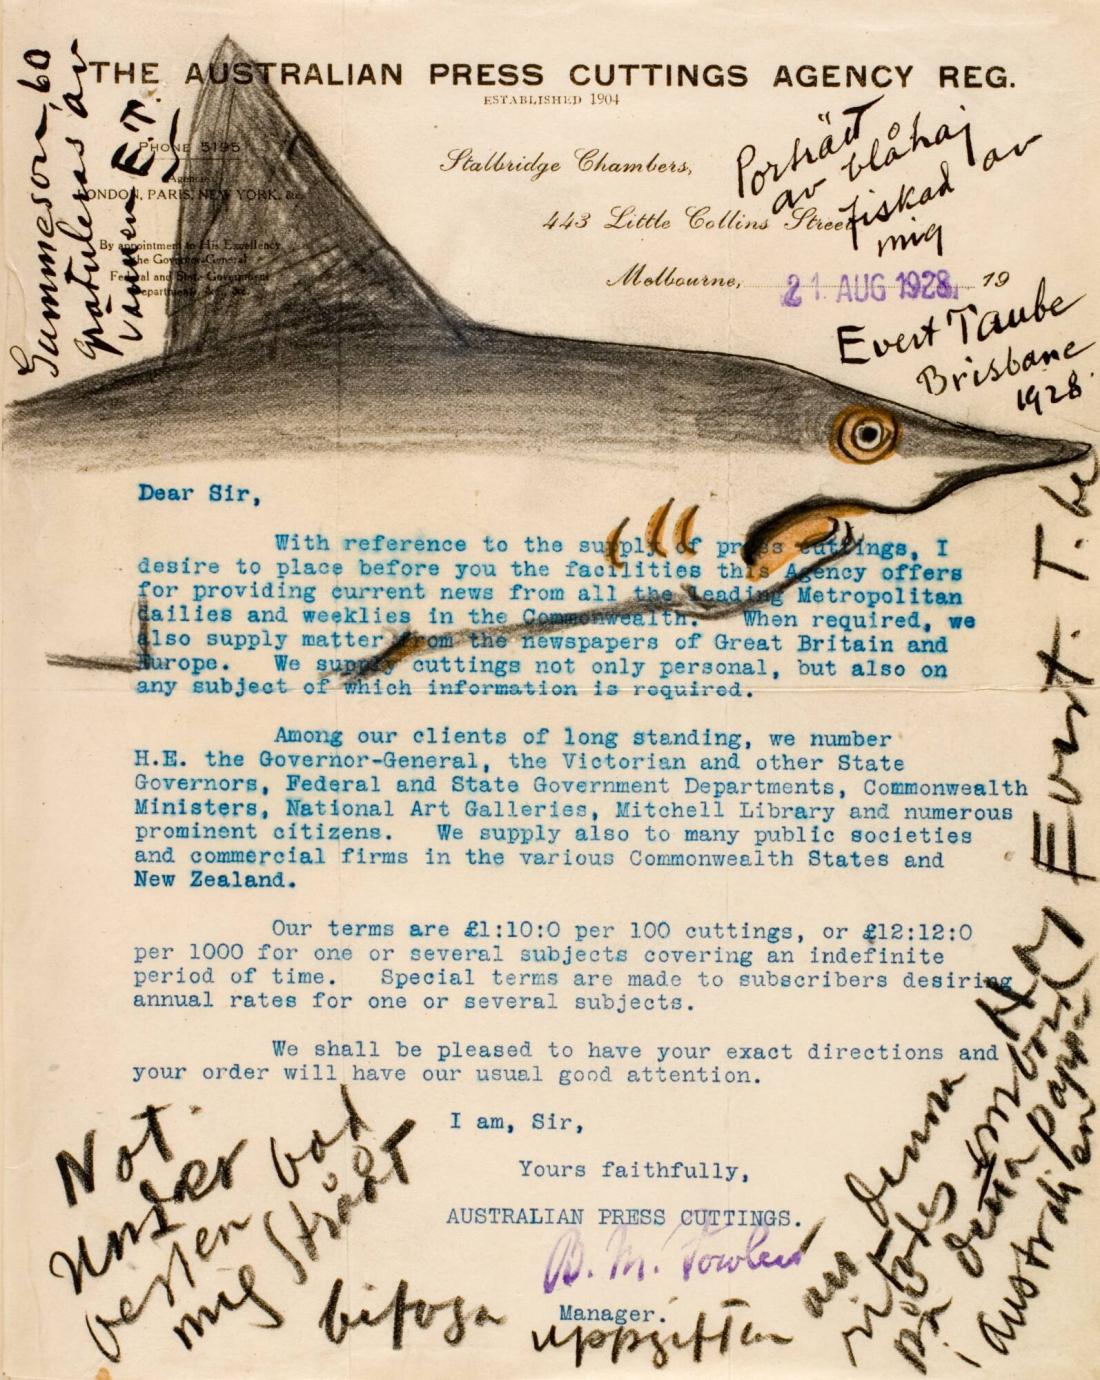 THE AUSTRALIAN PRESS CUTTINGS AGENCY REG.
ESTABLISHED 1904
PHONE 5195
Agencies
LONDON, PARIS, NEW YORK, &c.
By appointment to His Excellency
the Governor-General
Federal and State Government
Departments, &c., &c.
Stalbridge Chambers,
443 Little Collins Street
Melbourne, 21 AUG 1928. 19
Gummeson, 60
gratuleras av
vännen E.T.
Porträtt
av blåhaj
fiskad av
mig
Evert Taube
Brisbane
1928.
Dear Sir,
With reference to the supply of press cuttings, I
desire to place before you the facilities this Agency offers
for providing current news from all the leading Metropolitan
dailies and weeklies in the Commonwealth. When required, we
also supply matter from the newspapers of Great Britain and
Europe. We supply cuttings not only personal, but also on
any subject of which information is required.
Among our clients of long standing, we number
H.E. the Governor-General, the Victorian and other State
Governors, Federal and State Government Departments, Commonwealth
Ministers, National Art Galleries, Mitchell Library and numerous
prominent citizens. We supply also to many public societies
and commercial firms in the various Commonwealth States and
New Zealand.
Our terms are £1:10:0 per 100 cuttings, or £12:12:0
per 1000 for one or several subjects covering an indefinite
period of time. Special terms are made to subscribers desiring
annual rates for one or several subjects.
We shall be pleased to have your exact directions and
your order will have our usual good attention.
I am, Sir,
Yours faithfully,
AUSTRALIAN PRESS CUTTINGS.
B. M. Fowler
Manager.
Not.
under
bad
mig
bifoga
uppgiften
att denna
ritades
på detta papper
ombord
Evert. T.